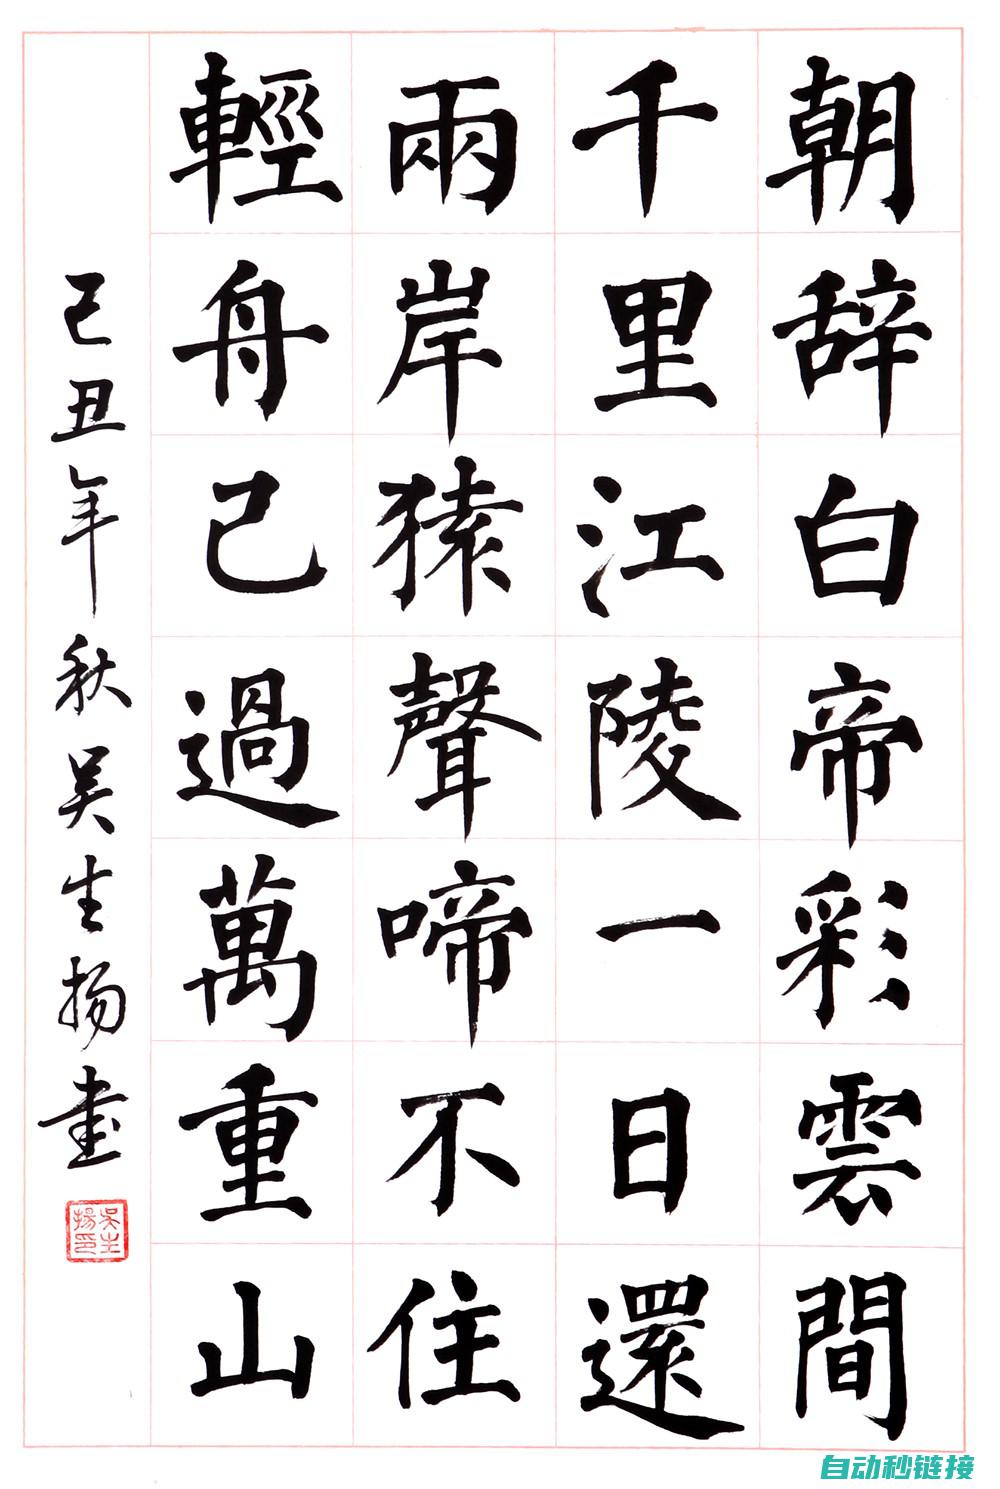 朝辞白帝彩雲間
千里江陵一日還
兩岸猿聲啼不住
輕舟已過萬重山
己丑年秋吴生扬书
吴生揚印
自动秒链接